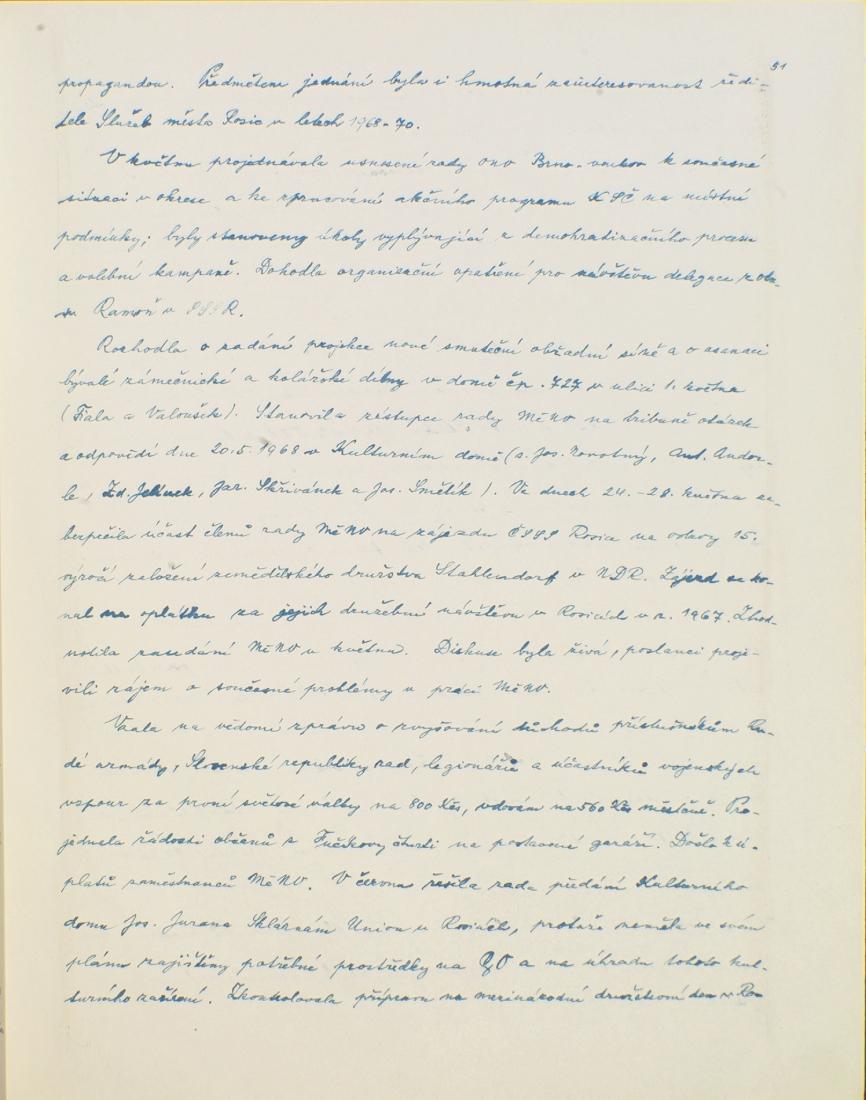 51
propagandou. Předmětem jednání byla i hmotná zainteresovanost ředi-
tele Služeb města Rosic v letech 1968-70.
V květnu projednávala usnesení rady ONV Brno-venkov k současné
situaci v okrese a ke zpracování akčního programu KSČ na místní
podmínky; byly stanoveny úkoly vyplývající z demokratizačního procesu
a volební kampaně. Dohodla organizační opatření pro návštěvu delegace z ob-
Ramoň v SSSR.
Rozhodla o zadání projekce nové smuteční obřadní síně a o asanaci
bývalé zámečnické a kolářské dílny v domě čp. 727 v ulici 1. května
(Fiala a Valoušek). Stanovila zástupce rady MěNV na tribuně otázek
a odpovědí dne 20.5.1968 v Kulturním domě (s. Jos. Novotný, Ant. Andor-
le, Zd. Jelínek, Jar. Skřivánek a Jos. Smetík). Ve dnech 24.-28. května za-
bezpečila účast členů rady MěNV na zájezdu ČSSS Rosice na oslavy 15.
výročí založení zemědělského družstva Stahlendorf v NDR. Zájezd se ko-
nal na oplátku za jejich družební návštěvu v Rosicích v r. 1967. Zhod-
notila zasedání MěNV v květnu. Diskuse byla živá, poslanci proje-
vili zájem o současné problémy v práci MěNV.
Vzala na vědomí zprávu o zvyšování důchodů příslušníkům Ru-
dé armády, Slovenské republiky rad, legionářů a účastníků vojenských
vzpour za první světové války na 800 Kčs, vdovám na 560 Kčs měsíčně. Pro-
jednala žádosti občanů z Fučíkovy čtvrti na postavení garáží. Došlo k ú-
platů zaměstnanců MěNV. V červnu řešila rada předání Kulturního
domu Jos. Jurana Sklárnám Union v Rosicích, protože neměla ve svém
plánu zajištěny potřebné prostředky na GO a na úhradu tohoto kul-
turního zařízení. Zkontrolovala přípravu na mezinárodní družstevní den v Ro-